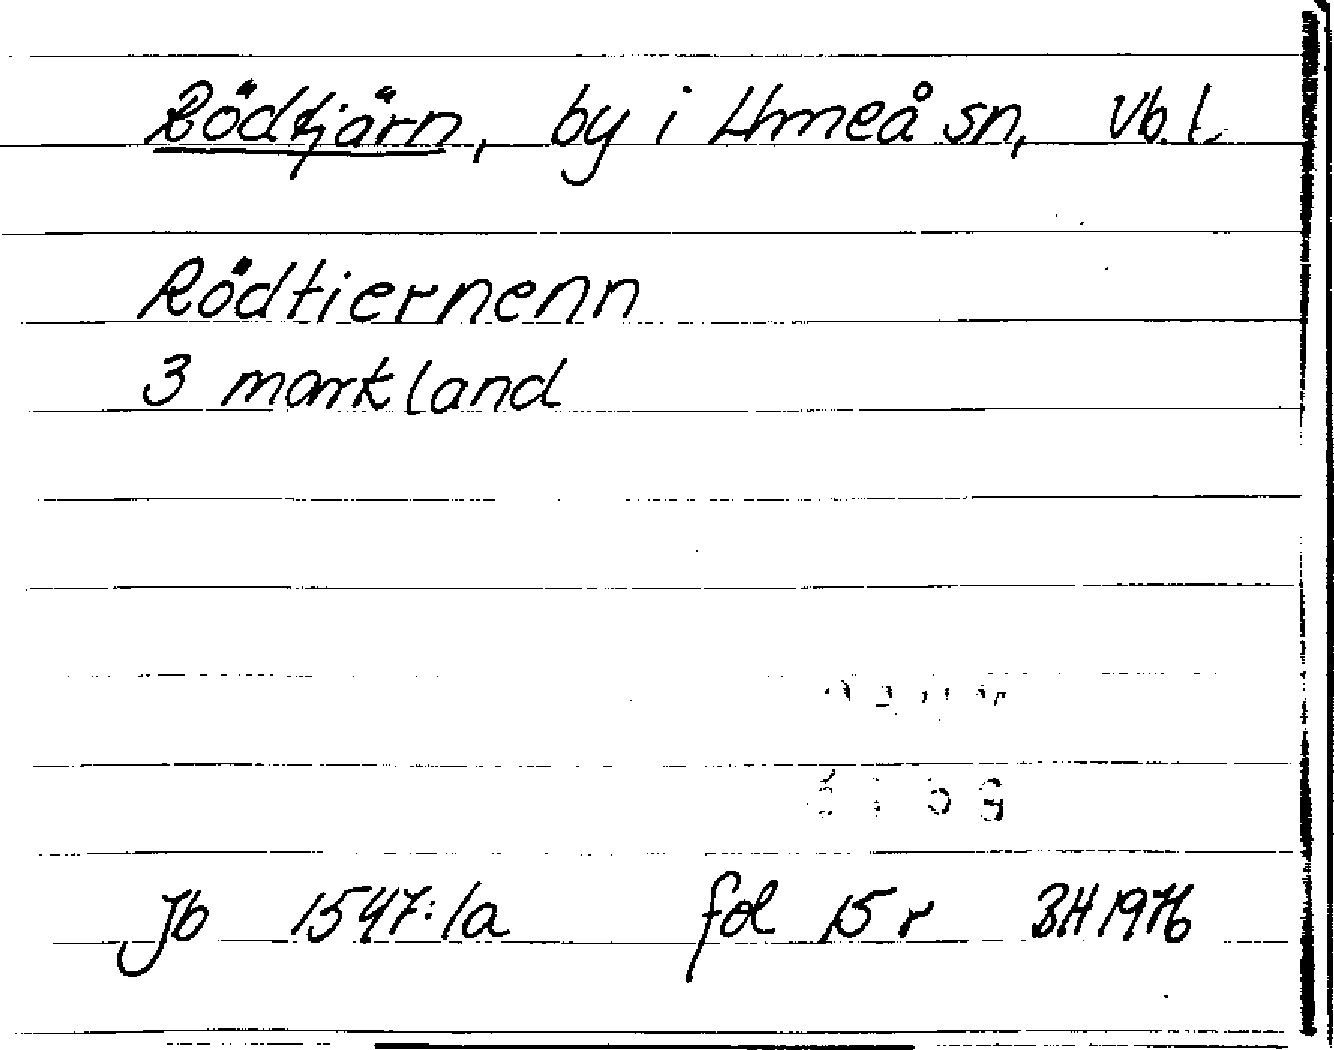 Rödtjärn, by i Umeå sn, Vb. l.
Rödtiernenn
3 markland
Jb 1547:1a fol 15 r BH 1976